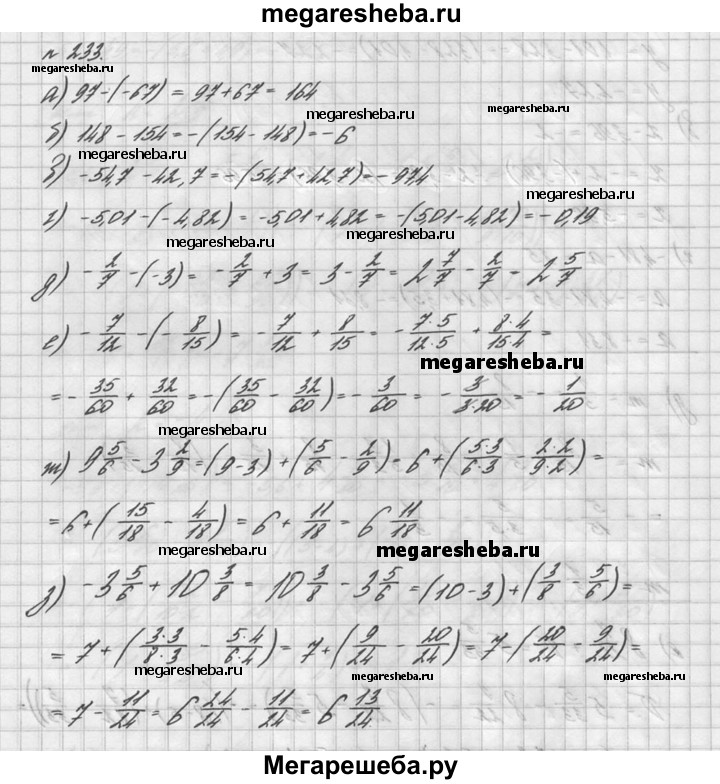 megaresheba.ru
№ 233.
megaresheba.ru
а) 97-(-67) = 97+67 = 164
megaresheba.ru
megaresheba.ru
б) 148 - 154 = -(154 - 148) = -6
megaresheba.ru
в) -54,7 - 42,7 = -(54,7 + 42,7) = -97,4
г) -5,01 - (-4,82) = -5,01 + 4,82 = -(5,01 - 4,82) = -0,19
megaresheba.ru
megaresheba.ru
д) -2/7 - (-3) = -2/7 + 3 = 3 - 2/7 = 2 7/7 - 2/7 = 2 5/7
е) -7/12 - (-8/15) = -7/12 + 8/15 = -7·5/12·5 + 8·4/15·4 =
megaresheba.ru
= -35/60 + 32/60 = -(35/60 - 32/60) = -3/60 = -3/3·20 = -1/20
megaresheba.ru
ж) 9 5/6 - 3 2/9 = (9-3) + (5/6 - 2/9) = 6 + (5·3/6·3 - 2·2/9·2) =
= 6 + (15/18 - 4/18) = 6 + 11/18 = 6 11/18
megaresheba.ru
megaresheba.ru
з) -3 5/6 + 10 3/8 = 10 3/8 - 3 5/6 = (10-3) + (3/8 - 5/6) =
= 7 + (3·3/8·3 - 5·4/6·4) = 7 + (9/24 - 20/24) = 7 - (20/24 - 9/24) =
megaresheba.ru
megaresheba.ru
= 7 - 11/24 = 6 24/24 - 11/24 = 6 13/24
Мегарешеба.ру